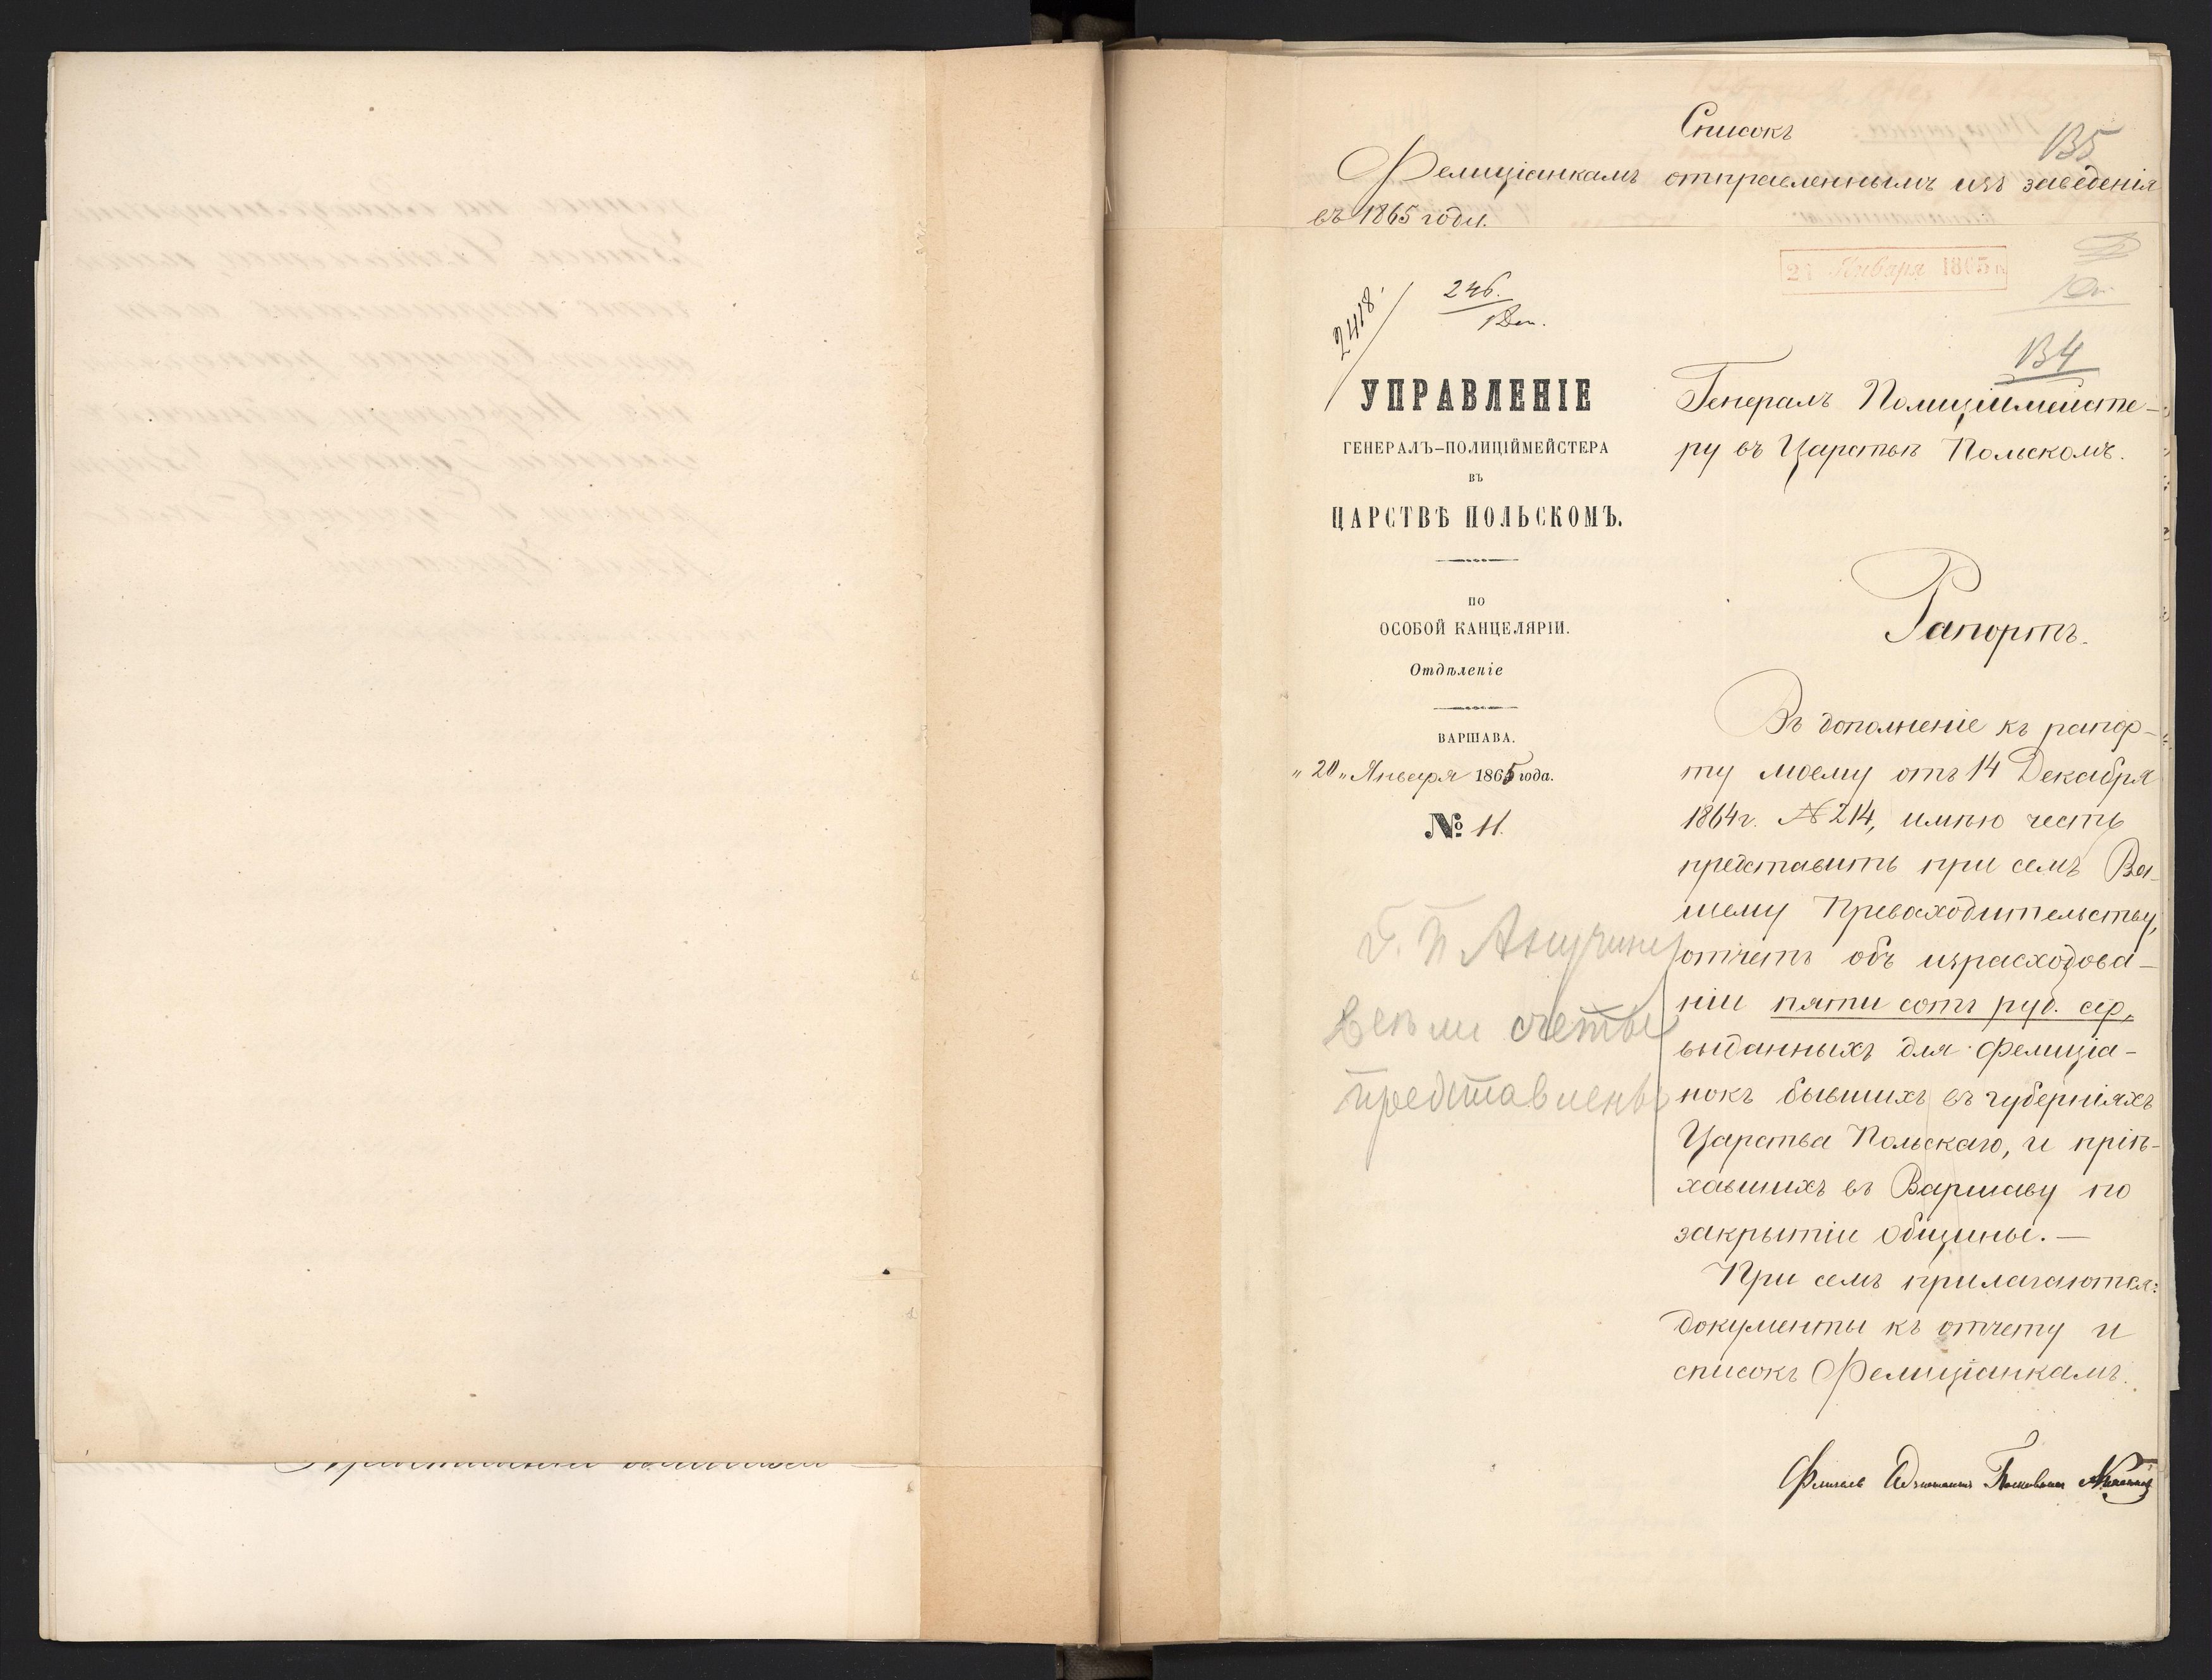 Списокъ
135
Фелиціанкамъ отправленнымъ изъ заведенія
въ 1865 году.
21 Января 1865 г.
2418
246.
134
УПРАВЛЕНІЕ
ГЕНЕРАЛЪ-ПОЛИЦІЙМЕЙСТЕРА
ВЪ
ЦАРСТВѢ ПОЛЬСКОМЪ.
ПО
ОСОБОЙ КАНЦЕЛЯРІИ.
Отдѣленіе
ВАРШАВА.
„20„ Января 1865 года.
№ 11.
Генералъ Полиціймейсте-
ру въ Царствѣ Польскомъ.
Рапортъ.
Въ дополненіе къ рапор-
ту моему отъ 14 Декабря
1864 г. №214, имѣю честь
представить при семъ Ва-
шему Превосходительству,
отчетъ объ израсходова-
ніи пяти сотъ руб. сер,
выданныхъ для Фелиціа-
нокъ бывшихъ въ губерніяхъ
Царства Польскаго, и пріѣ-
хавшихъ въ Варшаву по
закрытіи общины.—
При семъ прилагаются:
документы къ отчету и
списокъ Фелиціанкамъ.
Г. П. Анучину
Всѣ ли счеты
представлены
Флигель Адъютантъ Полковникъ